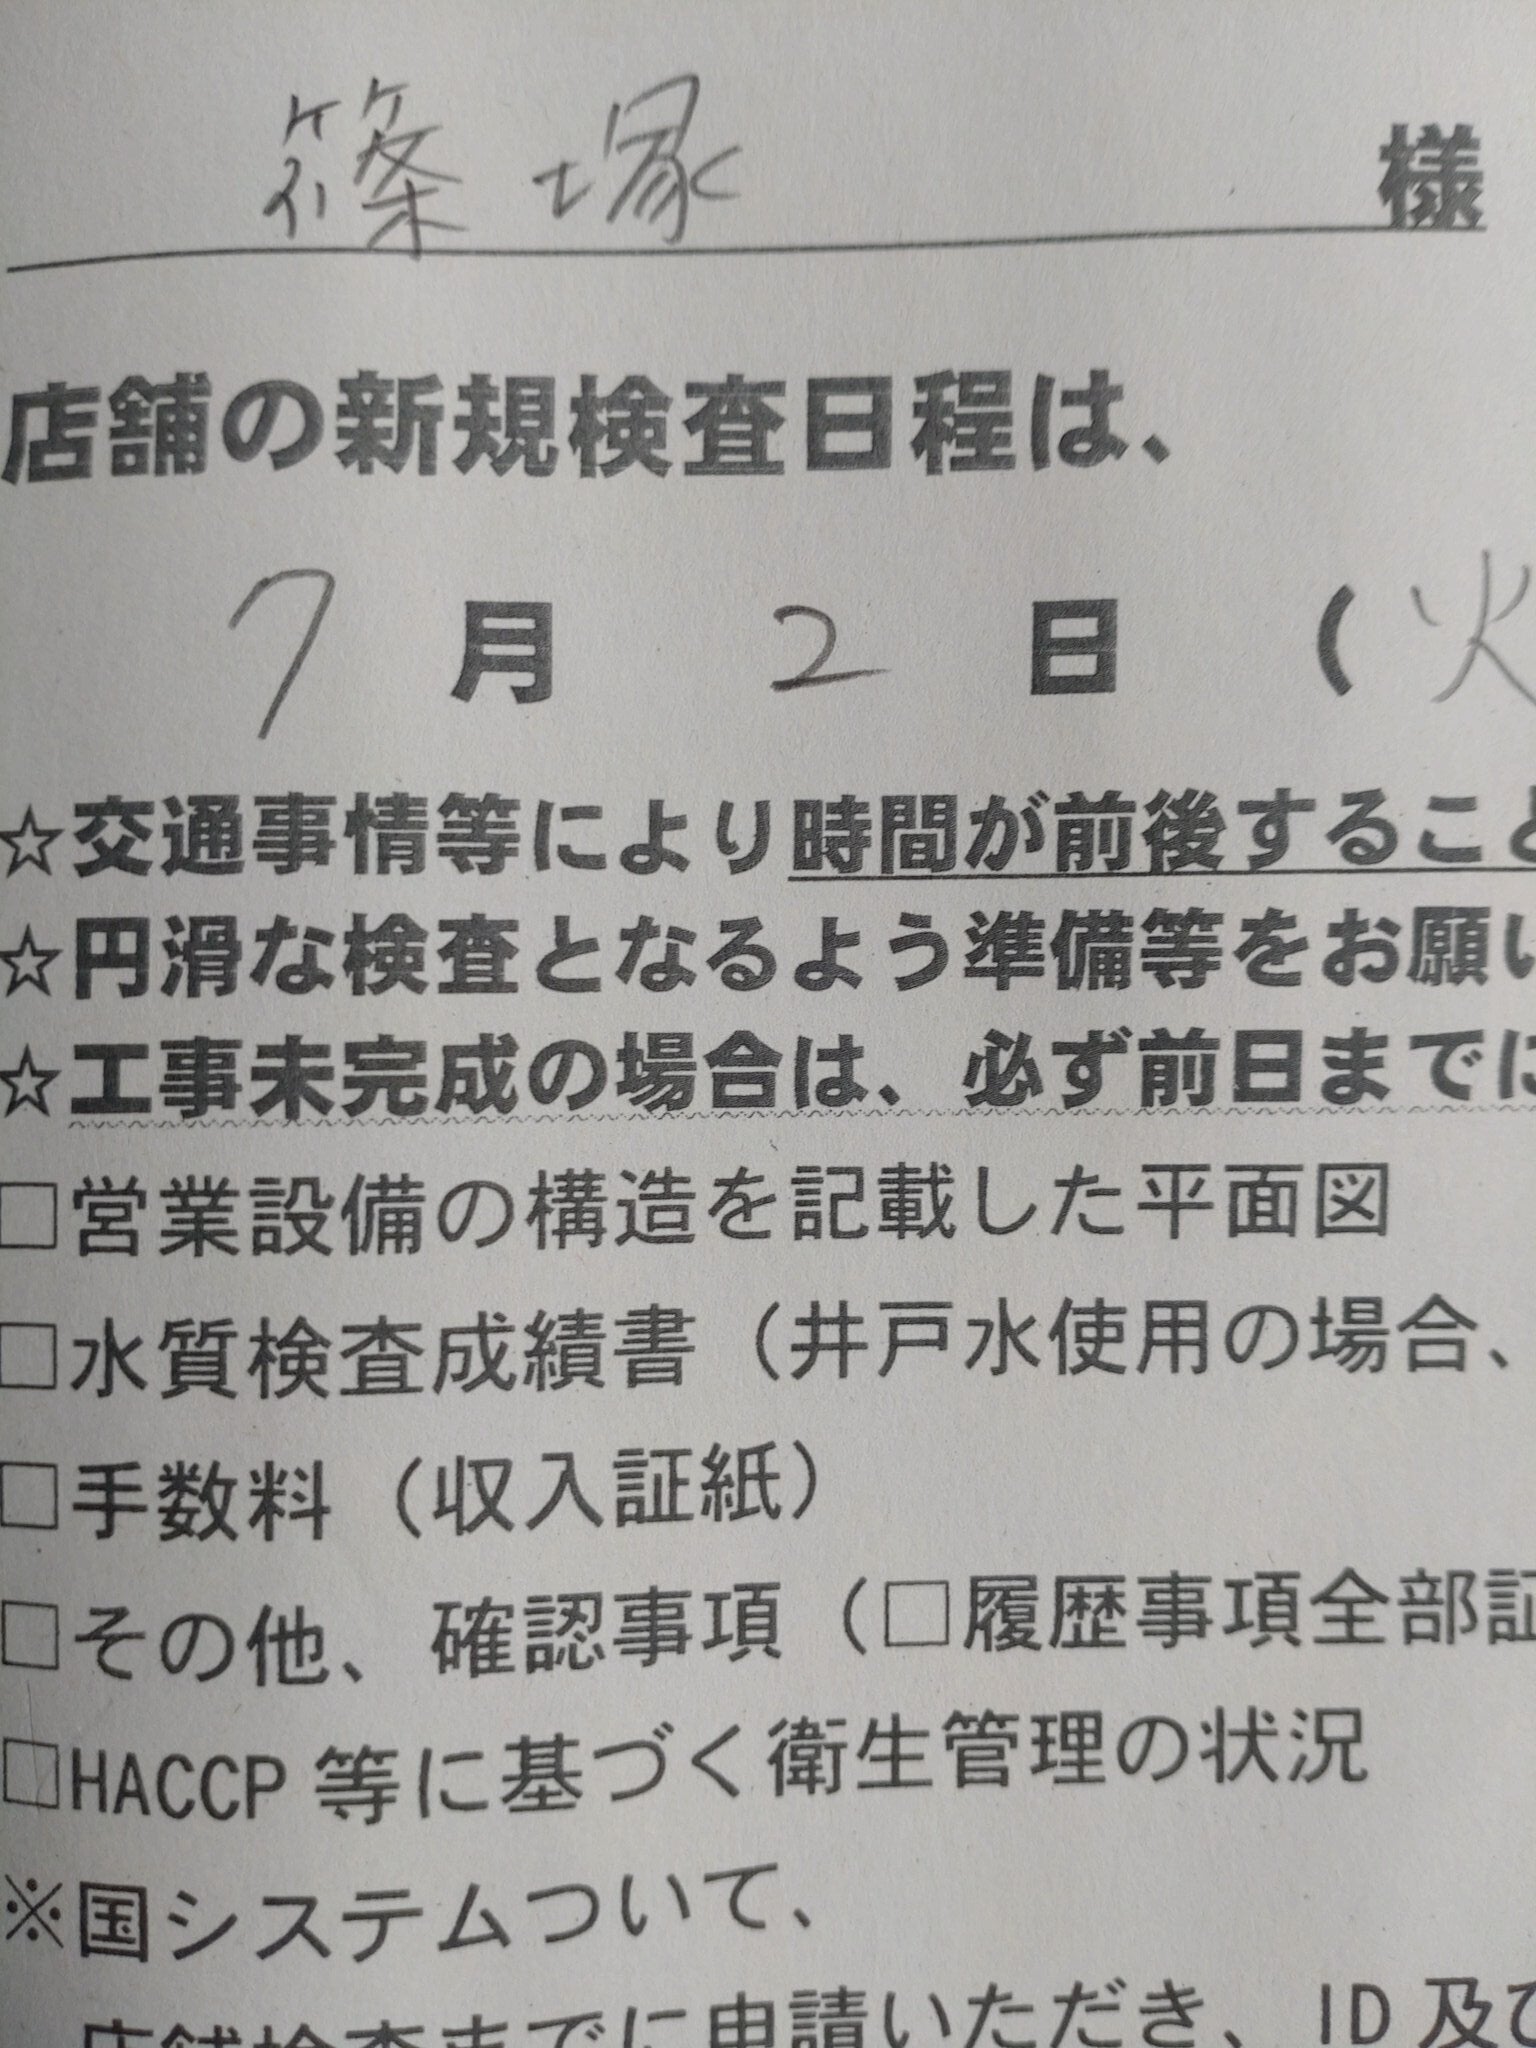 篠塚 様
店舗の新規検査日程は、
7月2日(火
☆交通事情等により時間が前後すること
☆円滑な検査となるよう準備等をお願い
☆工事未完成の場合は、必ず前日までに
□営業設備の構造を記載した平面図
□水質検査成績書（井戸水使用の場合、
□手数料（収入証紙）
□その他、確認事項（□履歴事項全部証
□HACCP等に基づく衛生管理の状況
※国システムついて、
店舗検査までに申請いただき、ID及び